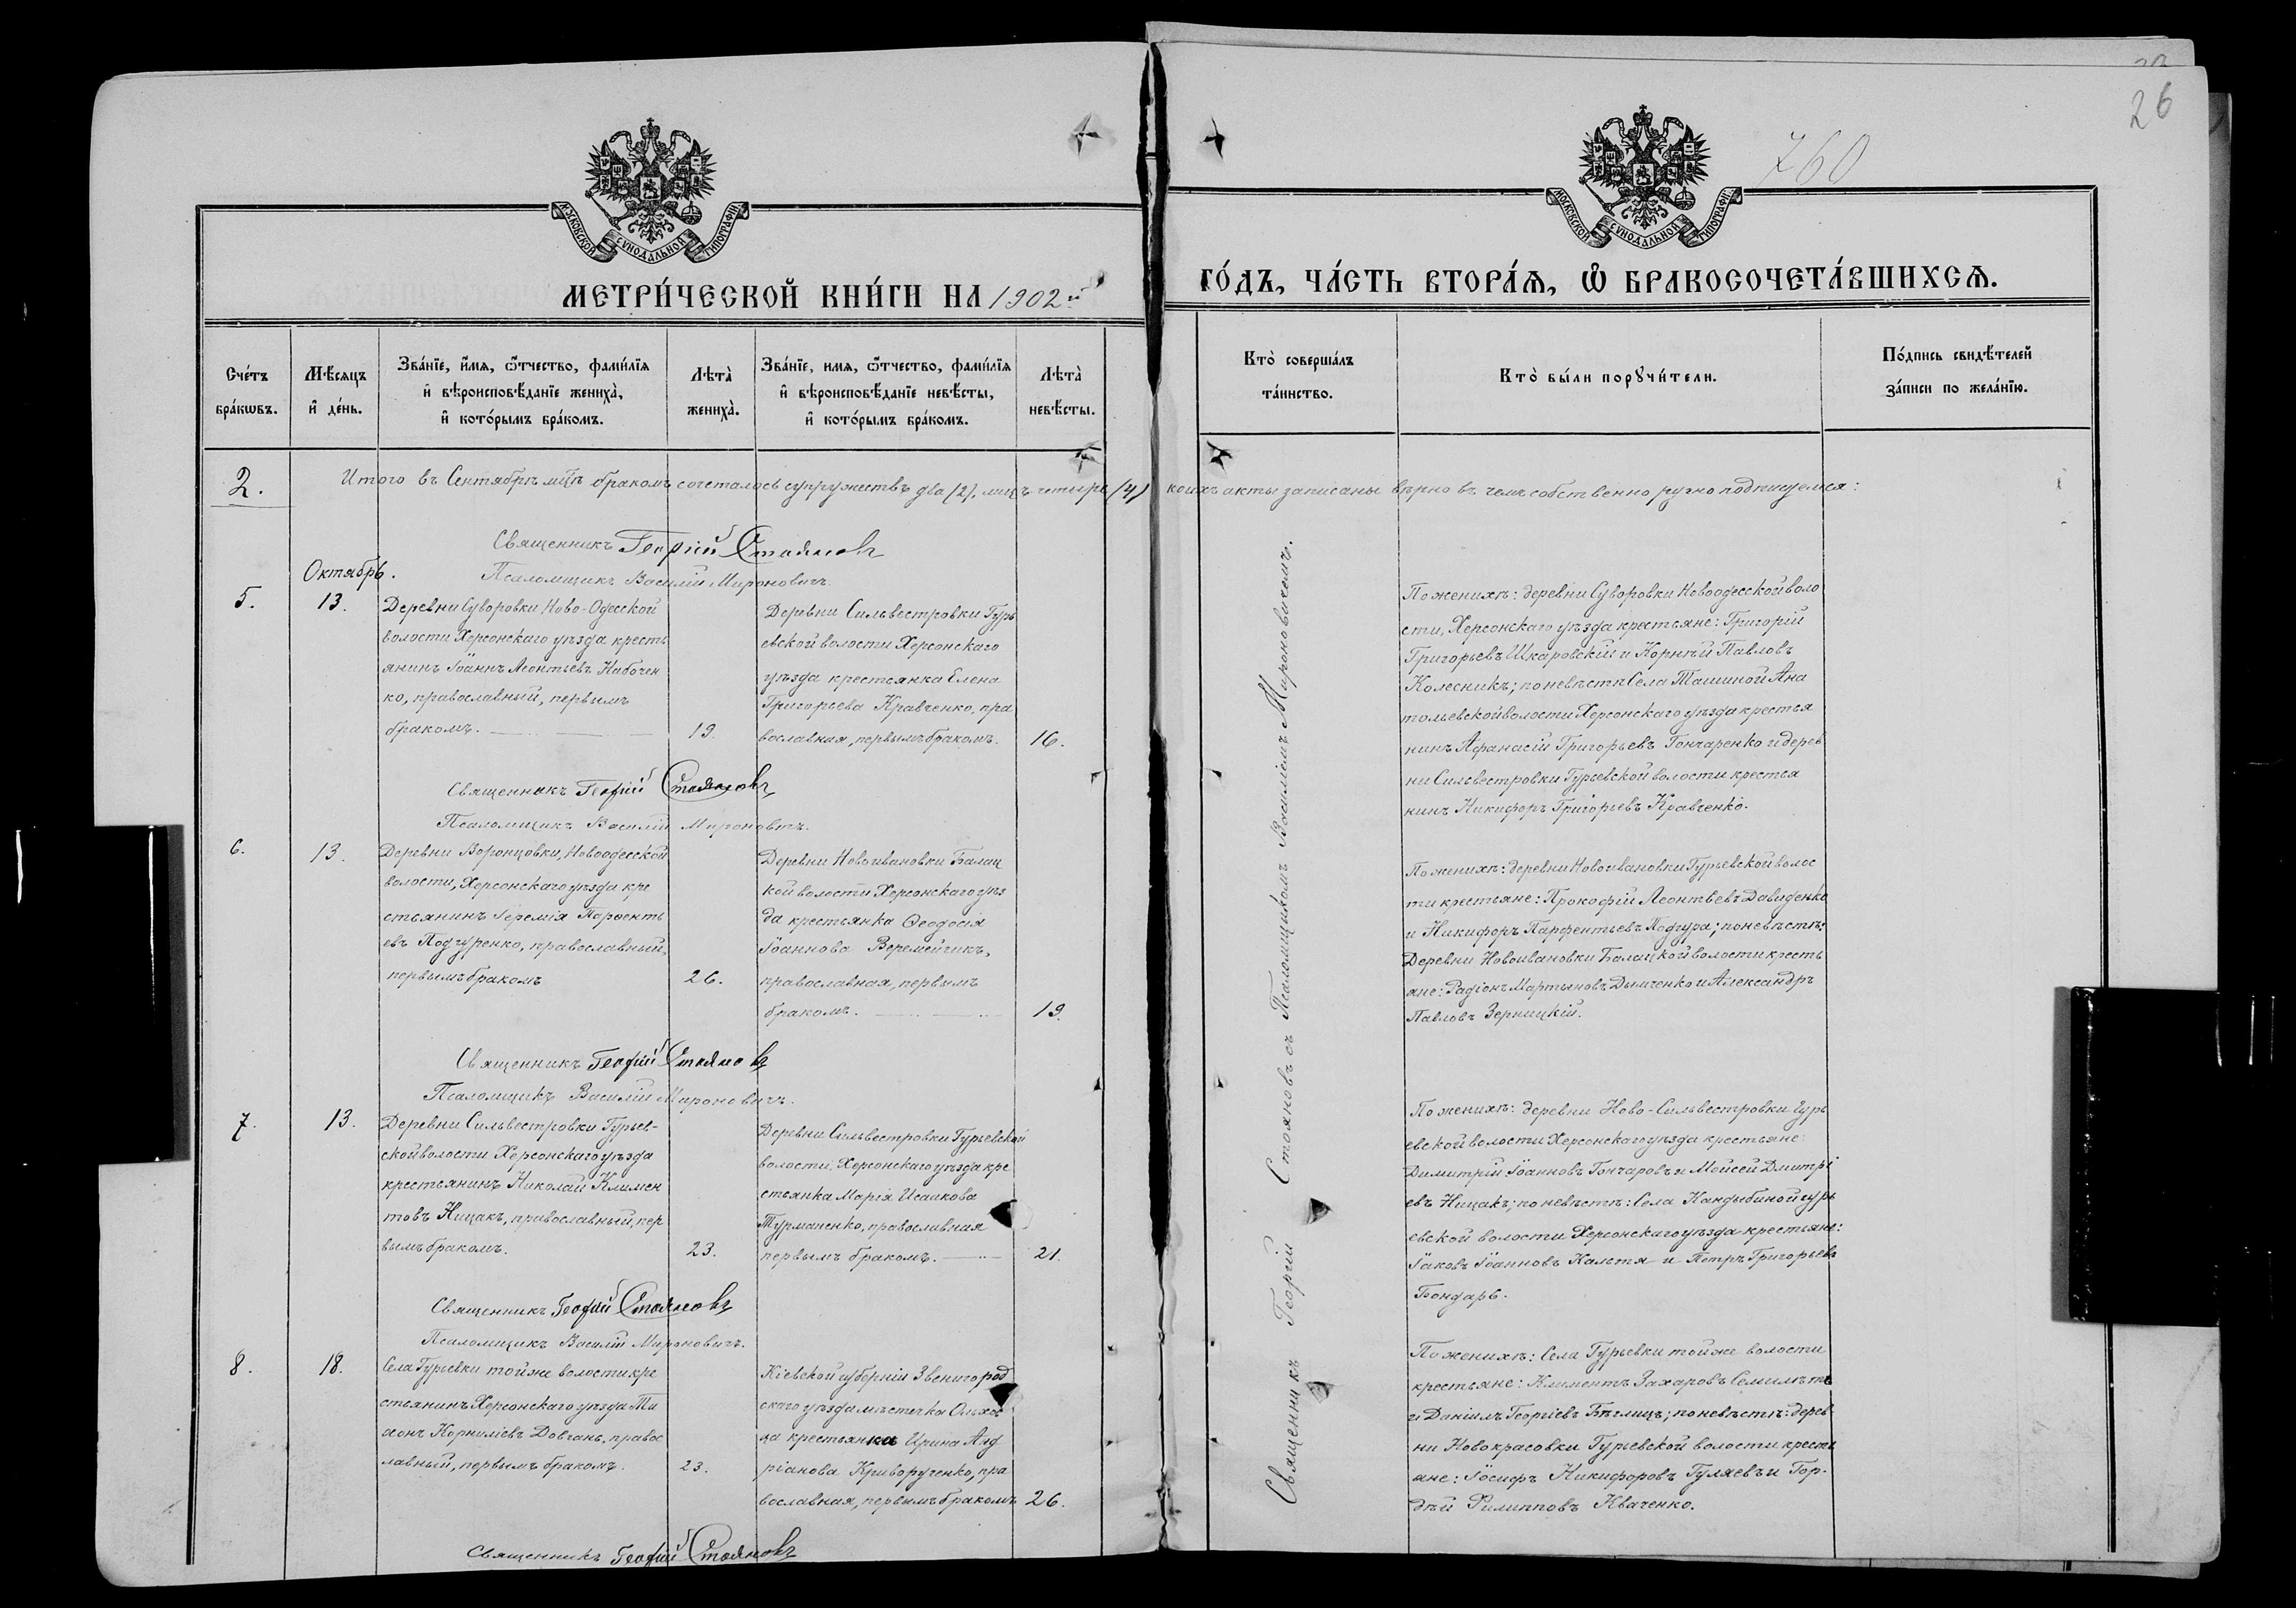 26
760
МОСКОВСКОЙ СѴНОДАЛЬНОЙ ТИПОГРАФІИ
МОСКОВСКОЙ СѴНОДАЛЬНОЙ ТИПОГРАФІИ
МЕТРИ́ЧЕСКОЙ КНИ́ГИ НА 1902й
ГО́ДЪ, ЧА́СТЬ ВТОРА́Ѧ, Ѽ БРАКОСОЧЕТА́ВШИХСѦ.
Сче́тъ
бра́кѡвъ.
Мѣ́сяцъ
и҆ де́нь.
Зва́нїе, и҆́мя, ѻ҆́тчество, фами́лїя
и҆ вѣроисповѣ́данїе жениха̀,
и҆ кото́рымъ бра́комъ.
Лѣта̀
жениха̀.
Зва́нїе, имя, ѻ҆́тчество, фами́лїя
и҆ вѣроисповѣ́данїе невѣ́сты,
и҆ кото́рымъ бра́комъ.
Лѣта̀
невѣ́сты.
Кто̀ соверша́лъ
та́инство.
Кто̀ бы́ли порꙋчи́тели.
По́дпись свидѣ́телей
за́писи по жела́нїю.
2.
Итого въ Сентябрѣ мцѣ бракомъ сочеталось супружествъ два (2), лицъ четыре (4) коихъ акты записаны вѣрно въ чемъ собственноручно подпищемся:
Священникъ Георгій Стояновъ
Псаломщикъ Василій Мироновичъ.
Октябрь.
5.
13.
Деревни Суворовки Ново-Одесской
волости Херсонскаго уѣзда кресть
янинъ Іоаннъ Леонтьевъ Набочен
ко, православный, первымъ
бракомъ.
19.
Деревни Сильвестровки Гурь
евской волости Херсонскаго
уѣзда крестьянка Елена
Григорьева Кравченко, пра
вославная, первымъ бракомъ.
16.
По женихѣ: деревни Суворовки Новоодесской воло
сти, Херсонскаго уѣзда крестьяне: Григорій
Григорьевъ Шкаровскій и Корнѣй Павловъ
Колесникъ; по невѣстѣ Села Ташиной Ана
тольевской волости Херсонскаго уѣзда крестья
нинъ Афанасій Григорьевъ Гончаренко и дерев
ни Сильвестровки Гурьевской волости крестья
нинъ Никифоръ Григорьевъ Кравченко.
Священникъ Георгій Стояновъ
Псаломщикъ Василій Мироновичъ.
6.
13.
Деревни Воронцовки, Новоодесской
волости, Херсонскаго уѣзда кре
стьянинъ Іеремія Парѳенть
евъ Подгуренко, православный,
первымъ бракомъ
26.
Деревни Новоивановки Балац
кой волости Херсонскаго уѣз
да крестьянка Ѳеодосія
Іоаннова Веремейчикъ,
православная, первымъ
бракомъ.
19.
По женихѣ: деревни Новоивановки Гурьевской волос
ти крестьяне: Прокофій Леонтьевъ Давиденко
и Никифоръ Парфентьевъ Подгура; по невѣстѣ:
Деревни Новоивановки Балацкой волости кресть
яне: Радіонъ Мартыновъ Дымченко и Александръ
Павловъ Зерницкій.
Священникъ Георгій Стояновъ
Псаломщикъ Василій Мироновичъ.
7.
13.
Деревни Сильвестровки Гурьев-
ской волости Херсонскаго уѣзда
крестьянинъ Николай Климен
товъ Ницакъ, православный, пер
вымъ бракомъ.
23.
Деревни Сильвестровки Гурьевской
волости, Херсонскаго уѣзда кре
стьянка Марія Исаакова
Турманенко, православная
первымъ бракомъ.
21.
По женихѣ: деревни Ново-Сильвестровки Гурь
евской волости Херсонскаго уѣзда крестьяне:
Димитрій Іоанновъ Гончаровъ и Мойсей Дмитрі
евъ Ницакъ; по невѣстѣ: Села Кандыбиной Гурь
евской волости Херсонскаго уѣзда крестьяне:
Іаковъ Іоанновъ Кальтя и Петръ Григорьевъ
Бондарь.
Священникъ Георгій Стояновъ
Псаломщикъ Василій Мироновичъ.
8.
18.
Села Гурьевки той же волости кре
стьянинъ Херсонскаго уѣзда
Корниліевъ Довгань, правос
лавный, первымъ бракомъ.
23.
Кіевской губерніи Звенигород
скаго уѣзда мѣстечка Ольхов
ца крестьянка Ирина Анд
ріанова Криворученко, пра
вославная, первымъ бракомъ
26.
По женихѣ: Села Гурьевки той же волости
крестьяне: Климентъ Захаровъ Семилѣтъ
и Даніилъ Георгіевъ Бѣглицъ; по невѣстѣ: дерев
ни Новокрасовки Гурьевской волости кресть
яне: Іосифъ Никифоровъ Гуляевъ и Гор-
дѣй Филипповъ Кваченко.
Священникъ Георгій Стояновъ
Священникъ Георгій Стояновъ съ Псаломщикомъ Василіемъ Мироновичемъ.